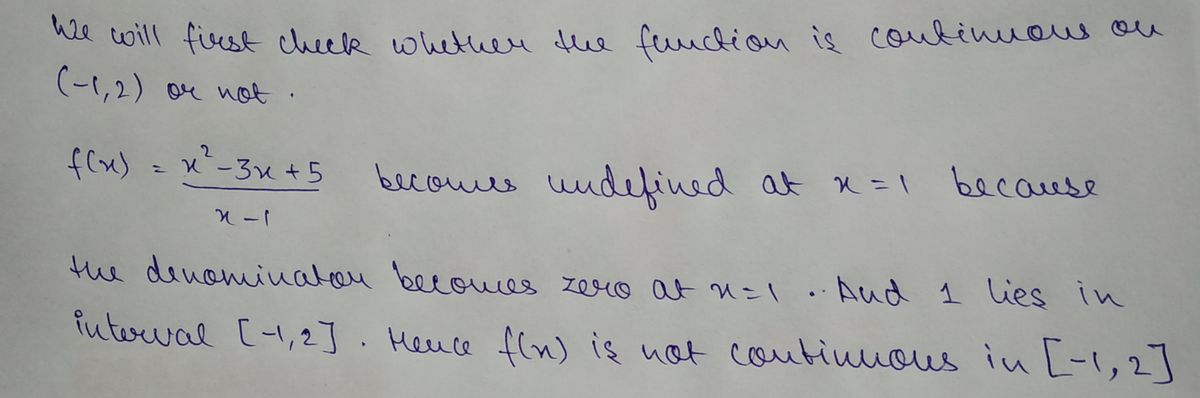 We will first check whether the function is continuous on
(-1,2) or not.
f(x) = x²-3x+5 becomes undefined at x=1 because
x-1
the denominator becomes zero at x=1. And 1 lies in
interval [-1,2]. Hence f(x) is not continuous in [-1,2]